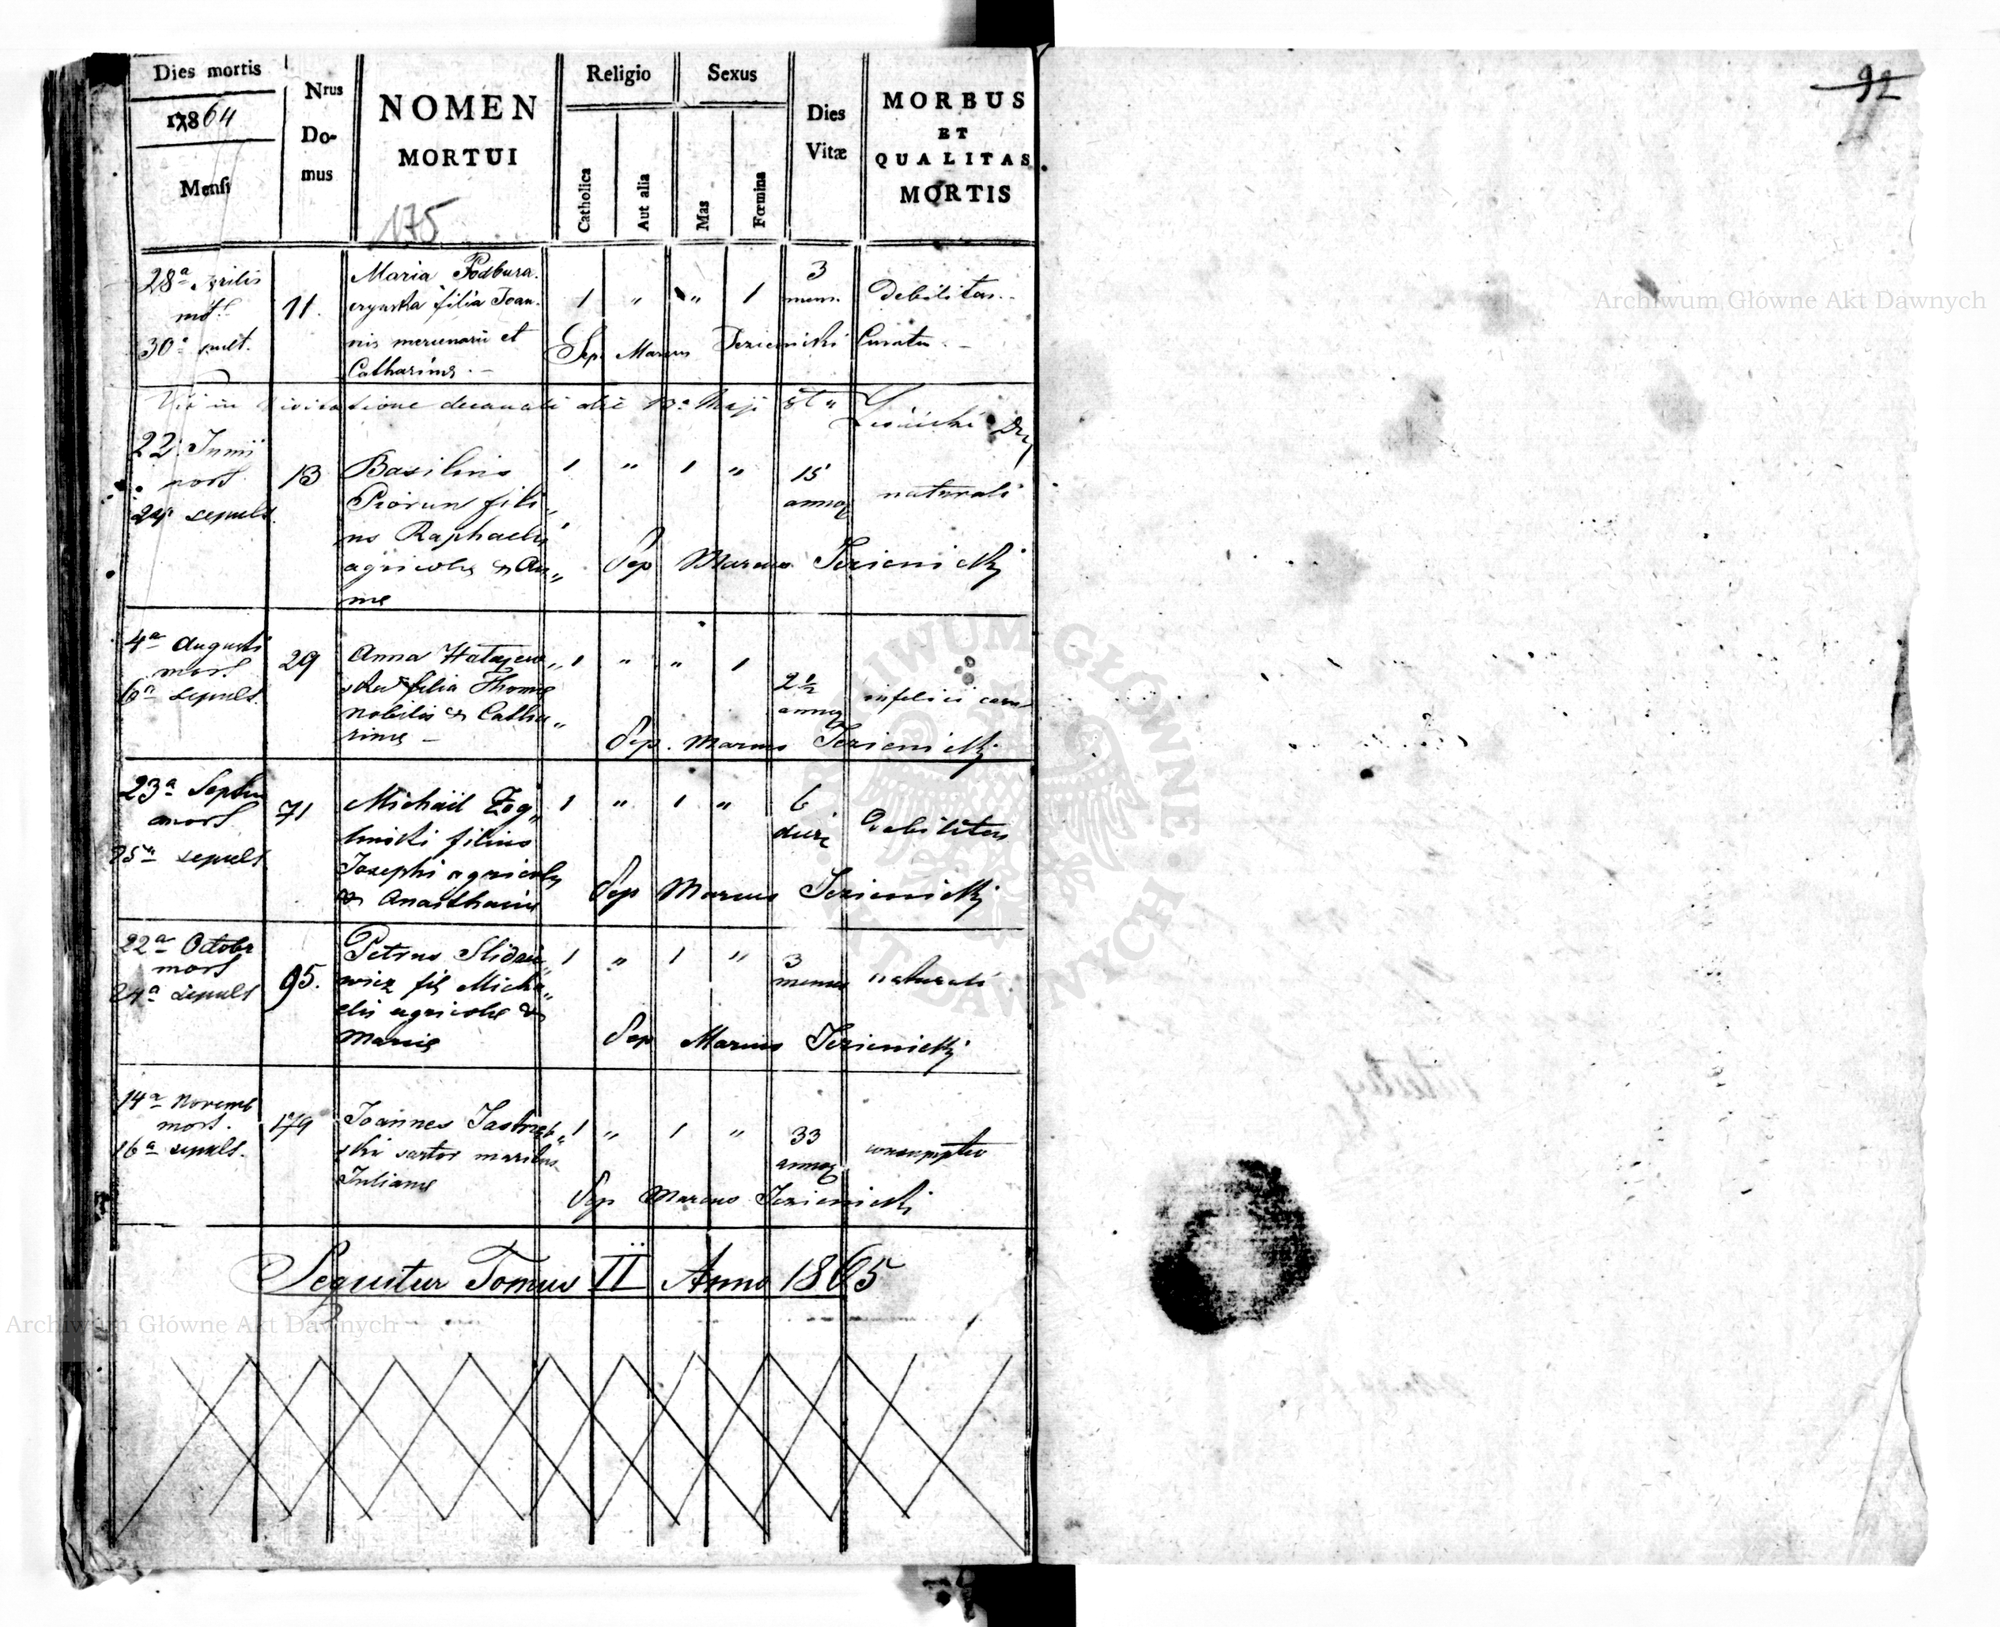 Dies mortis
1864
Mensi
Nrus
Do-
mus
NOMEN
MORTUI
175
Religio
Catholica
Aut alia
Sexus
Mas
Fœmina
Dies
Vitæ
MORBUS
ET
QUALITAS
MORTIS
92
28ª Aprilis
mort.
30ª sult.
11.
Maria Podbura-
czynska filia Joan-
nis mercenarii et
Catharinæ. -
1 " " 1
3
mens.
Debilitas. -
Sep. Marcus Jezienicki Curatus. -
decanali die 13ª Maji
22 Junii
mort.
24 sepult.
13
Basilius
Piorun fili„
us Raphaelis
agricolæ & An„
næ
1 " 1 "
15
annoz
naturali
Sep Marcus Jezienicky
4ª Augusti
mort
6ª sepult.
29
Anna Hatayew„
ska filia Thomæ
nobilis & Catha„
rinæ -
1 " " 1
2 1/2
annoz
infelici casu
Sep. Marcus Jezienicky
23ª Septem
mort.
25ª sepult
71
Michäil Zog„
linicki filius
Josephi agricolæ
& Anasthasiæ
1 " 1 "
6
dierz
Debilitas
Sep Marcus Jezienicky
22ª Octobr
mort
24ª sepult
95.
Petrus Slidzie„
wicz fil Micha„
elis agricolæ &
Mariæ
1 " 1 "
3
menses
naturali
Sep Marcus Jezienicky
14ª Novemb
mort.
16ª sepult.
179
Joannes Jastrzęb„
ski sartor maritus
Julianæ
1 " 1 "
33
annoz
consumptio
Sep Marcus Jezienicki
Sequitur Tomus II Anno 1865
Archiwum Główne Akt Dawnych
Archiwum Główne Akt Dawnych
ARCHIWUM GŁÓWNE AKT DAWNYCH